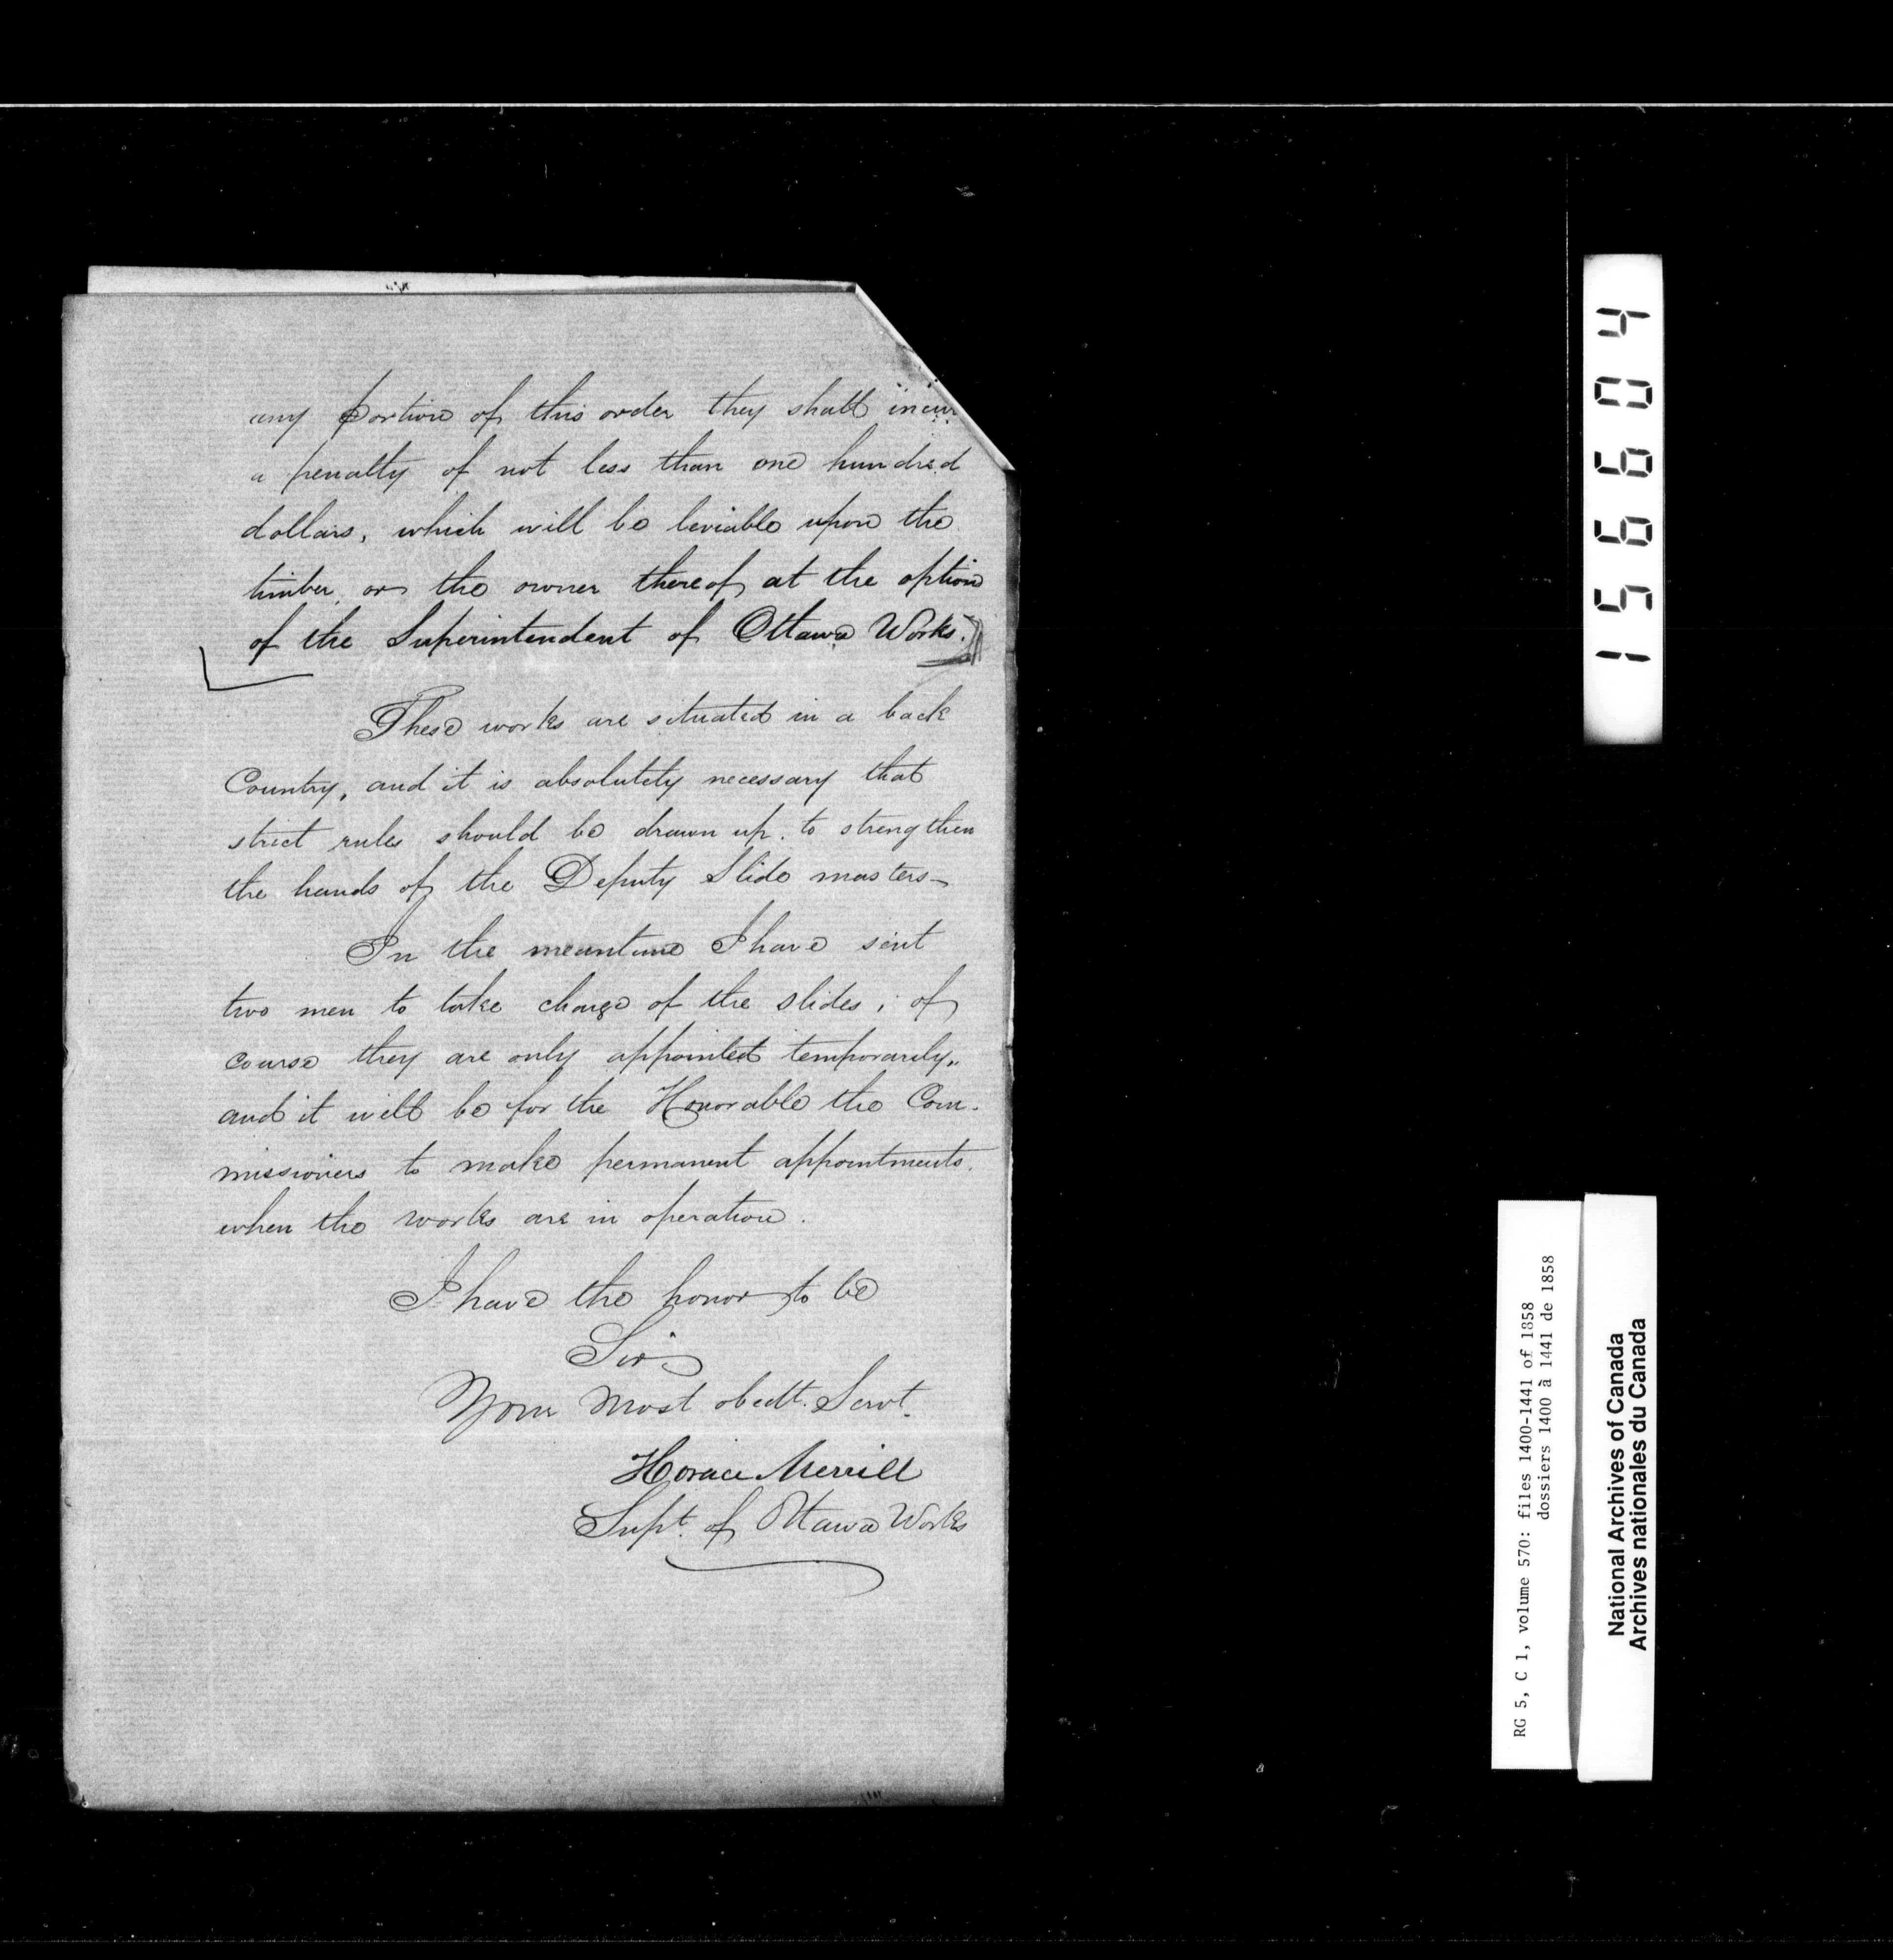 any portion of this order they shall incur
a penalty of not less than one hundred
dollars, which will be leviable upon the
timber, or the owner thereof at the option
of the Superintendent of Ottawa Works.
These works are situated in a back
Country, and it is absolutely necessary that
strict rules should be drawn up, to strengthen
the hands of the Deputy Slide masters—
In the meantime I have sent
two men to take charge of the slides; of
course they are only appointed temporarily,
and it will be for the Honorable the Com-
missioners to make permanent appointments,
when the works are in operation.
I have the honor to be
Sir
Your most obedt. Servt.
Horace Merrill
Supt. of Ottawa Works
156604
RG 5, C 1, volume 570: files 1400-1441 of 1858
dossiers 1400 à 1441 de 1858
National Archives of Canada
Archives nationales du Canada